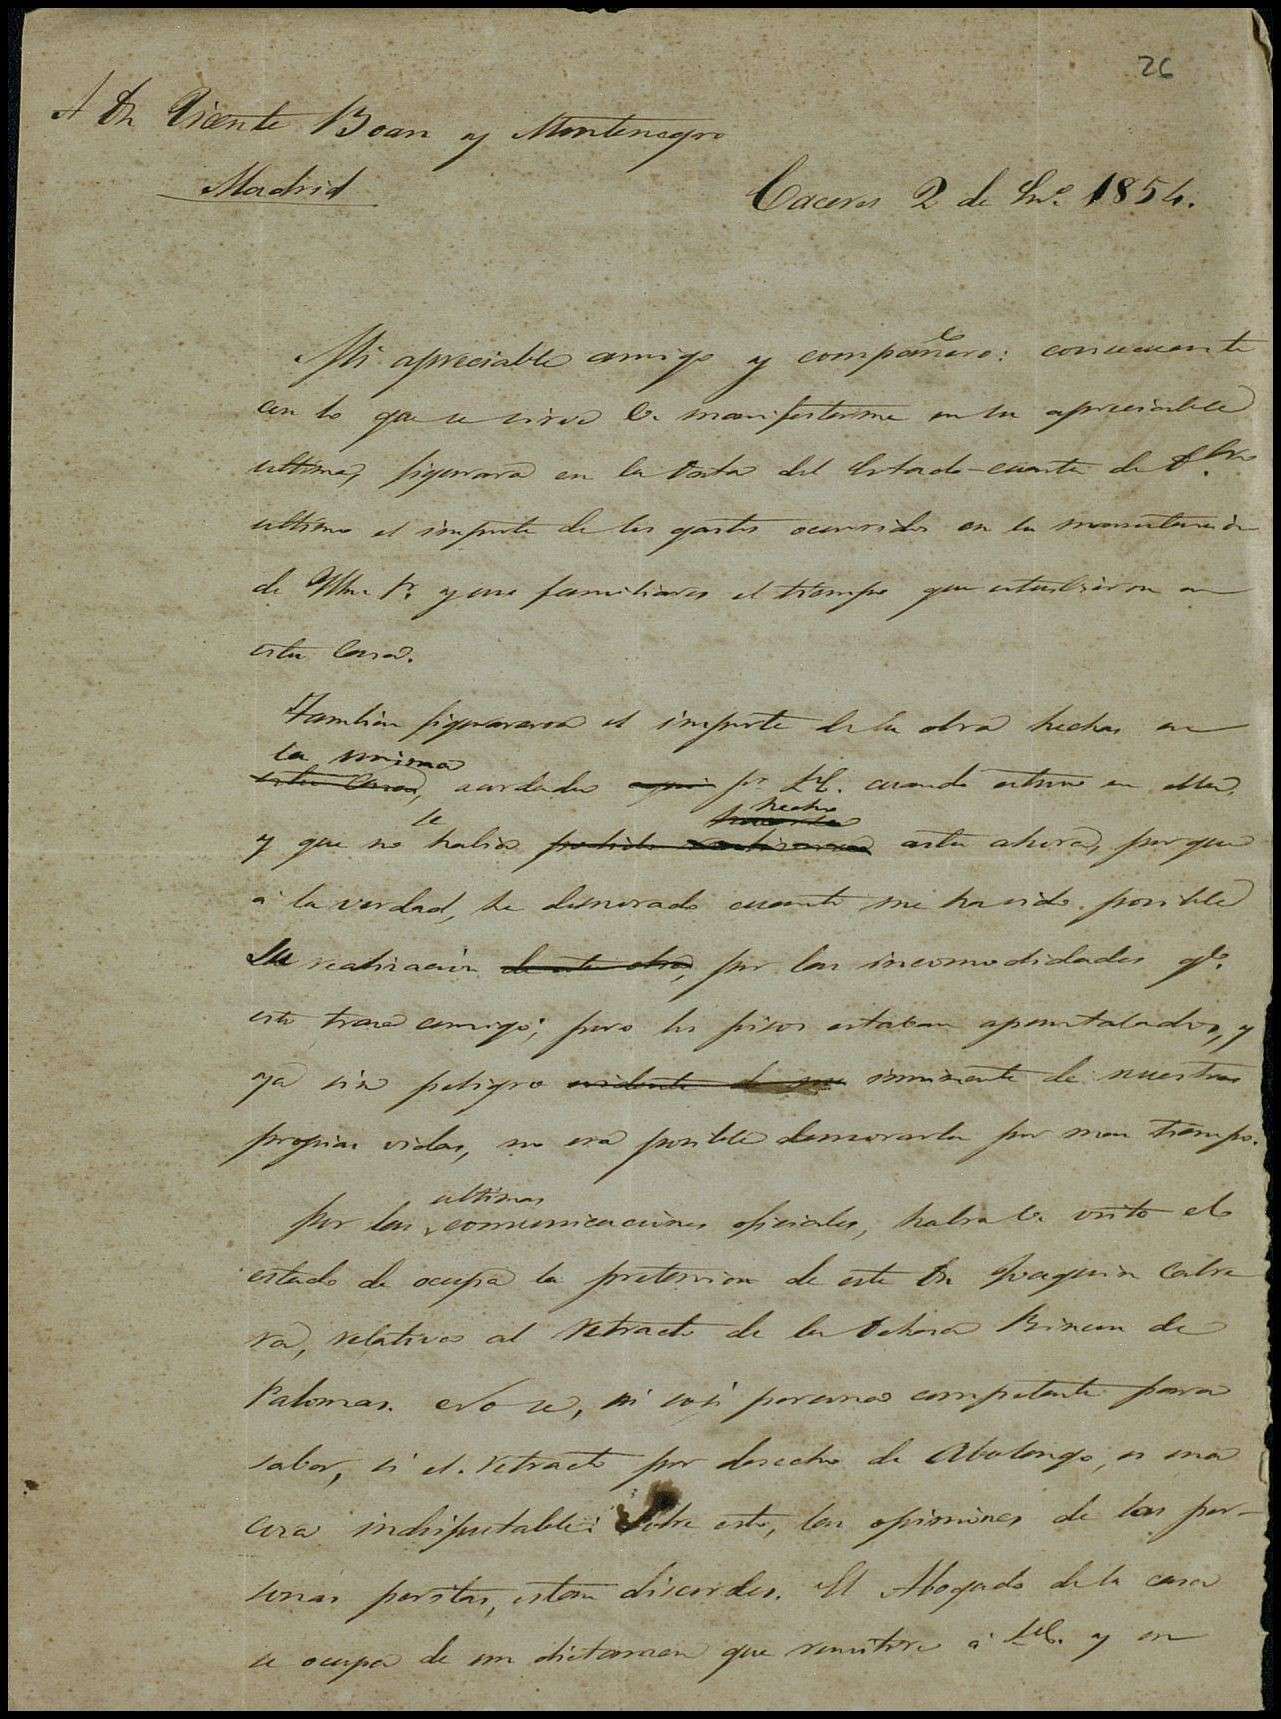 26
A Dn Vicente Boan y Montenegro
Madrid
Caceres 2 de En.o 1854.
Mi apreciable amigo y compañero: consecuente
con lo que se sirve V. manifestarme en su apreciable
ultima, figurará en la Data del Estado-cuenta de Dbre.
ultimo el importe de los gastos ocurridos en la manutencion
de y sus familiares el tiempo que estuvieron en
esta Casa.
Tambien figurará el importe de la obra hecha en
la misma
esta Casa, acordada aqui pr. V. cuando estuvo en ella,
se hecho
y que no habia podido realizarse asta ahora, porque
á la verdad, he demorado cuanto me ha sido posible
su realizacion de esta obra, por las incomodidades qe.
esto trae consigo; pero los pisos estaban apuntalados, y
ya sin peligro evidente de inminente de nuestras
propias vidas, no era posible demorarla por mas tiempo.
ultimas
Por las comunicaciones oficiales, habra V. visto el
estado de ocupa la pretension de este Dn Joaquin Cabre
ra, relativa al retracto de la Dehesa Rincon de
Palomas. No se, ni soi persona competente para
saber, si el retracto por derecho de Abolengo, es una
cosa indisputable: Sobre esto, las opiniones de las per-
sonas peritas, estan discordes. El Abogado de la casa
se ocupa de un dictamen que remitire á V. y en